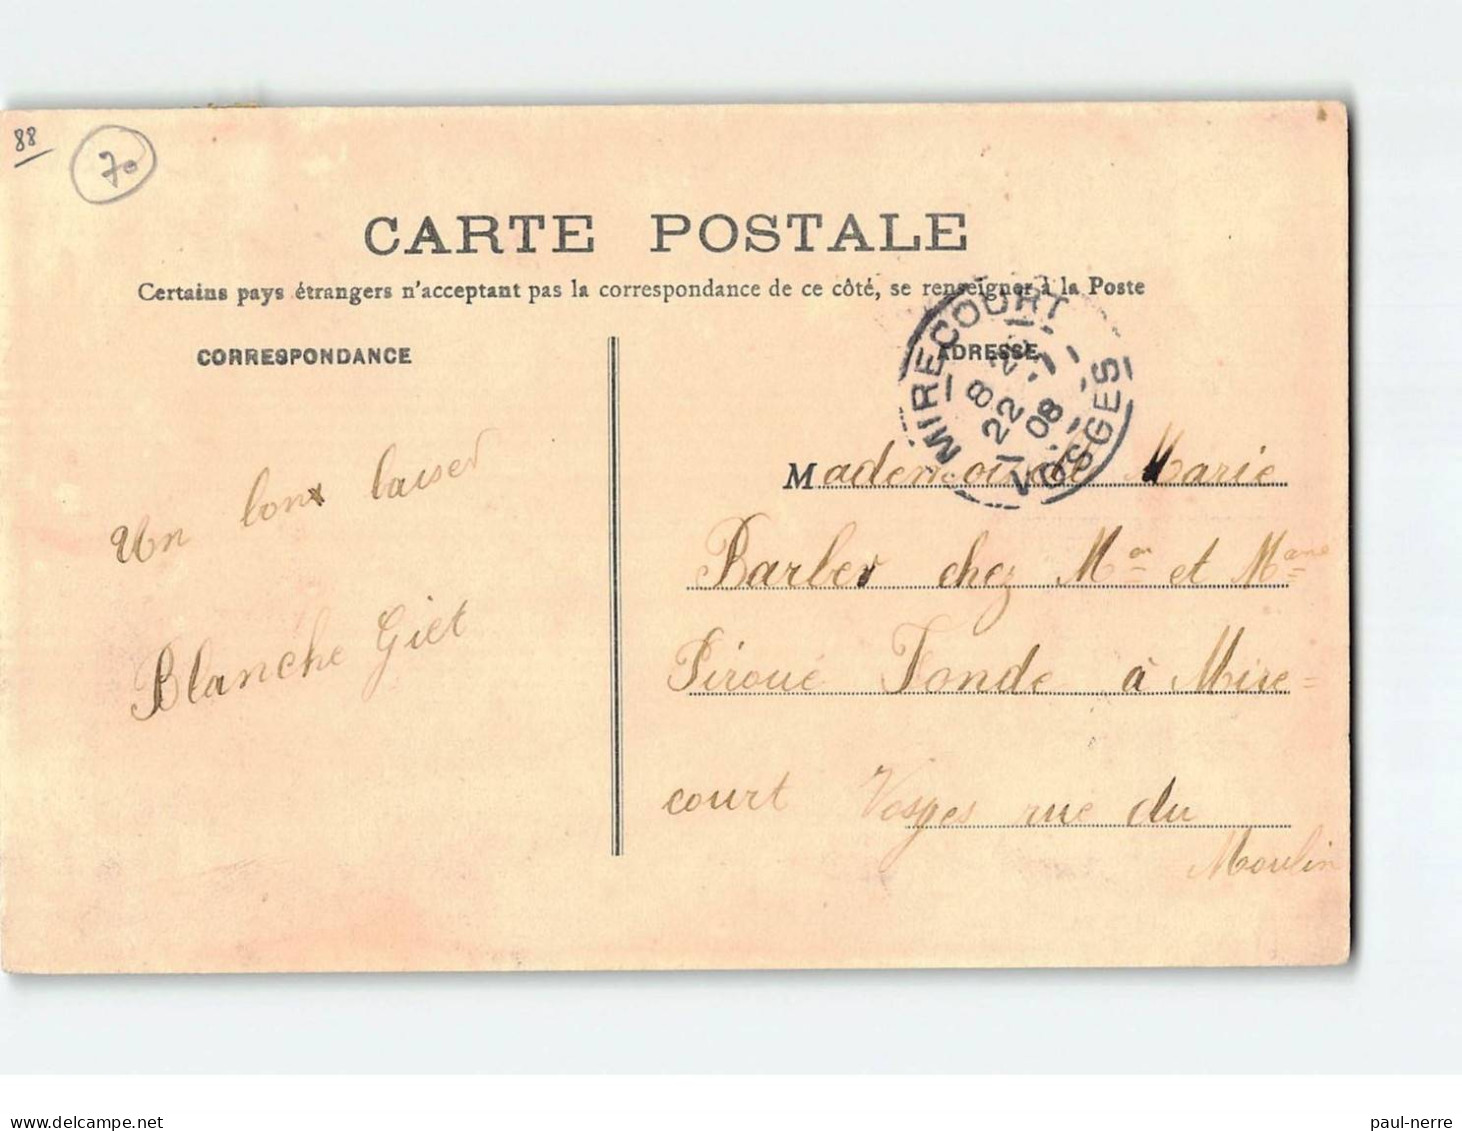 88
70
CARTE POSTALE
Certains pays étrangers n'acceptant pas la correspondance de ce côté, se renseigner à la Poste
CORRESPONDANCE
ADRESSE
MIRECOURT
8
22
08
VOSGES
Un bon baiser
Blanche Giet
Mademoiselle Marie
Barber chez Mr et Mme
Piroué Fonde à Mire=
court Vosges rue du
Moulin
paul-nerre